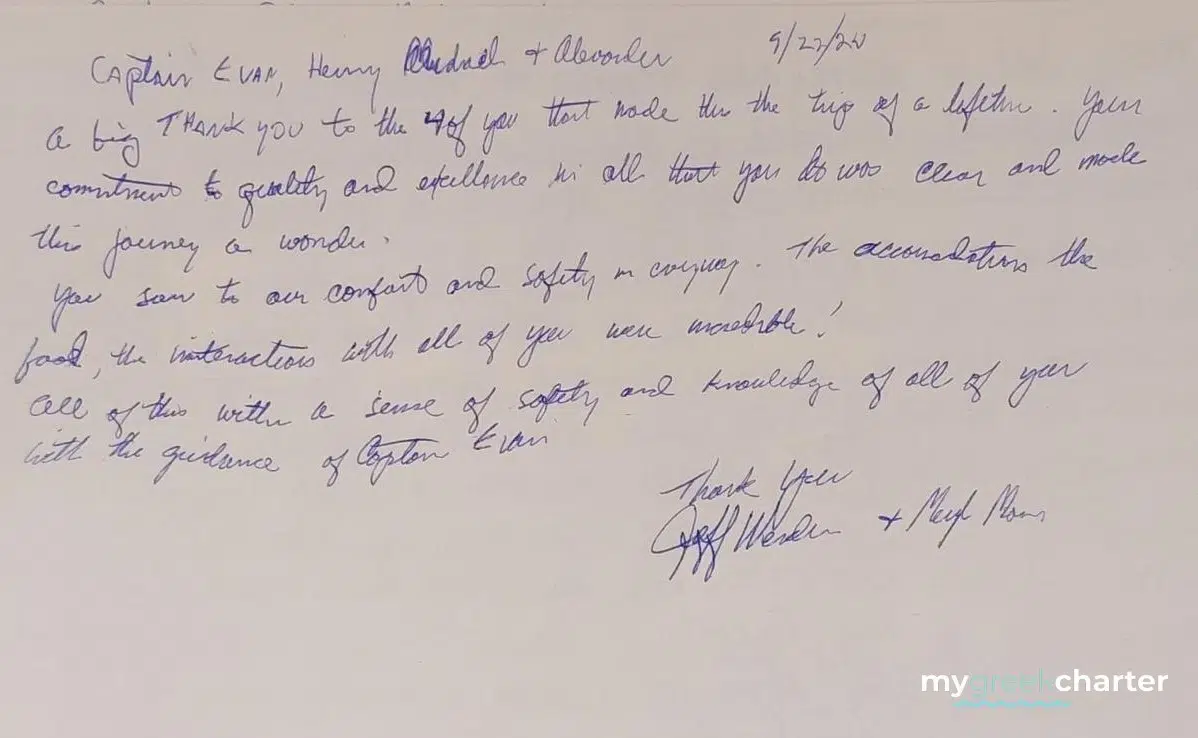 9/22/20
Captain EVAN, Henry + Alexander
a big THANK YOU to the 4 of you that made this the trip of a lifetime. Your
commitment to quality and excellence in all that you do was clear and made
this journey a wonder.
You saw to our comfort and safety in everyway. The accomodations the
food, the interactions with all of you were incredible!
All of this with a sense of safety and knowledge of all of you
with the guidance of Captain Evan
Thank you
Jeff + Meryl
mygreekcharter